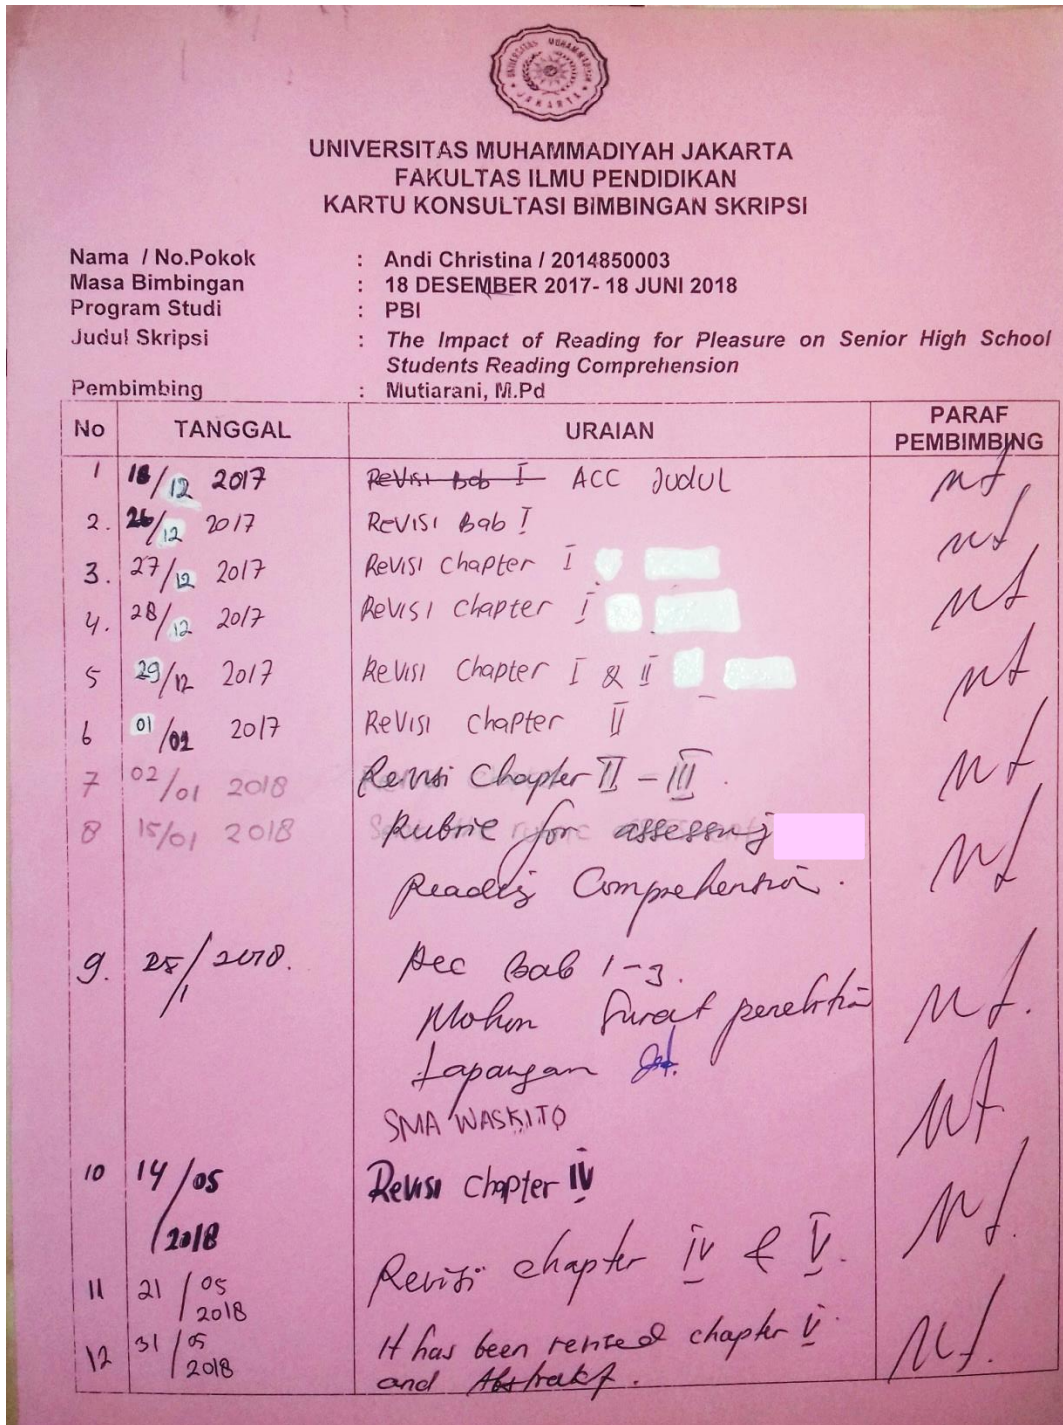 UNIVERSITAS MUHAMMADIYAH JAKARTA
UNIVERSITAS MUHAMMADIYAH JAKARTA
FAKULTAS ILMU PENDIDIKAN
KARTU KONSULTASI BIMBINGAN SKRIPSI
Nama / No.Pokok : Andi Christina / 2014850003
Masa Bimbingan : 18 DESEMBER 2017- 18 JUNI 2018
Program Studi : PBI
Judul Skripsi : The Impact of Reading for Pleasure on Senior High School
Students Reading Comprehension
Pembimbing : Mutiarani, M.Pd
No TANGGAL URAIAN PARAF PEMBIMBING
1 18/12 2017 Revisi Bab I ACC Judul
2. 26/12 2017 Revisi Bab I
3. 27/12 2017 Revisi Chapter I
4. 28/12 2017 Revisi Chapter I
5 29/12 2017 Revisi Chapter I & II
6 01/01 2017 Revisi Chapter II
7 02/01 2018 Revisi Chapter II - III.
8 15/01 2018 Rubric for assessing
Reading Comprehension.
9. 25/1 2018. Acc Bab 1-3.
Mohon Surat penelitian
Lapangan
SMA WASKITO
10 14/05 Revisi Chapter IV
/2018
Revisi chapter IV & V.
11 21/05
2018
12 31/05 It has been revised chapter V
2018 and Abstrakt.